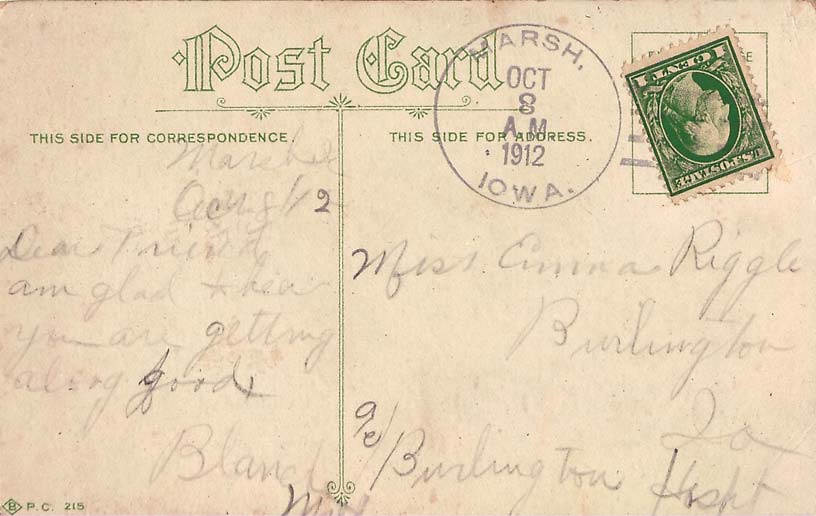 Post Card
THIS SIDE FOR CORRESPONDENCE.
THIS SIDE FOR ADDRESS.
MARSH,
OCT
8
A.M.
1912
IOWA.
1 CENT 1
U.S. POSTAGE
Dear Friend,
am glad to hear
you are getting
along good
Miss Emma Riggle
Burlington
Ia
c/o Burlington Hospt
B P.C. 215